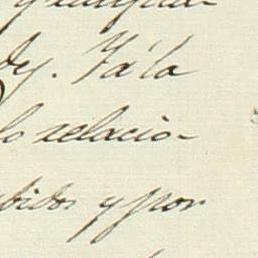 ley. Ya la
lo relacio-
bidos y por